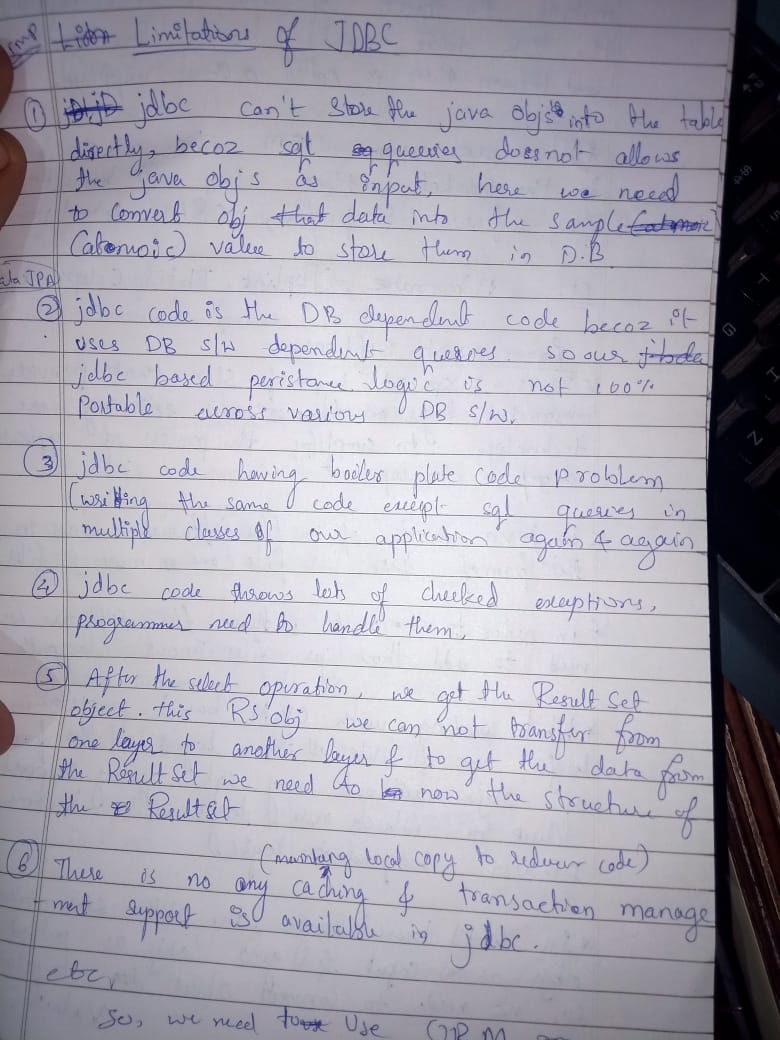 Imp Limitations of JDBC
① jdbc can't store the java objs into the table
directly, becoz sql queries does not allows
the java objs as input, here we need
to convert obj data into the sample
(atomoic) value to store them in D.B
ata JPA
② jdbc code is the DB dependent code becoz it
uses DB s/w dependent queries. so our
jdbc based peristance logic is not 100%
Portable across various DB s/w.
③ jdbc code having boiler plate code problem
(writing the same code except sql queries in
multiple classes of our application again & again
④ jdbc code throws lots of checked exceptions,
programmer need to handle them,
⑤ After the select operation, we get the Result Set
object. this RS.obj we can not transfer from
one layer to another layer & to get the data from
the Result Set we need to now the structure of
the Resultset
(maintang local copy to reducer code)
⑥ There is no any caching & transaction manage
ment support is available in jdbc.
etc,
So, we need to Use ORM